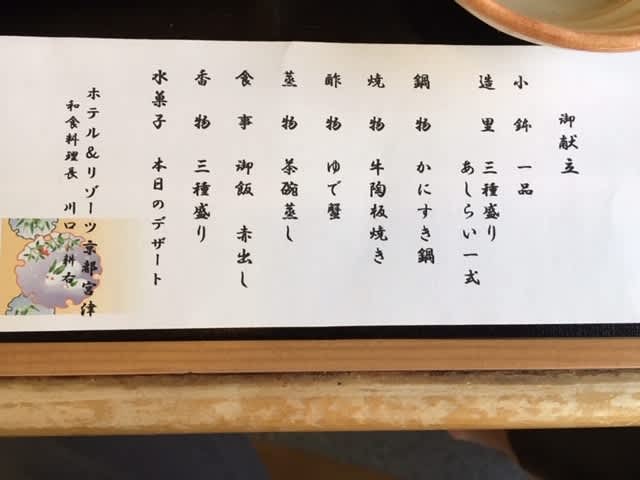 御献立
小鉢 一品
造里 三種盛り
あしらい一式
鍋物 かにすき鍋
焼物 牛陶板焼き
酢物 ゆで蟹
蒸物 茶碗蒸し
食事 御飯 赤出し
香物 三種盛り
水菓子 本日のデザート
ホテル&リゾーツ京都宮津
和食料理長 川口 耕右